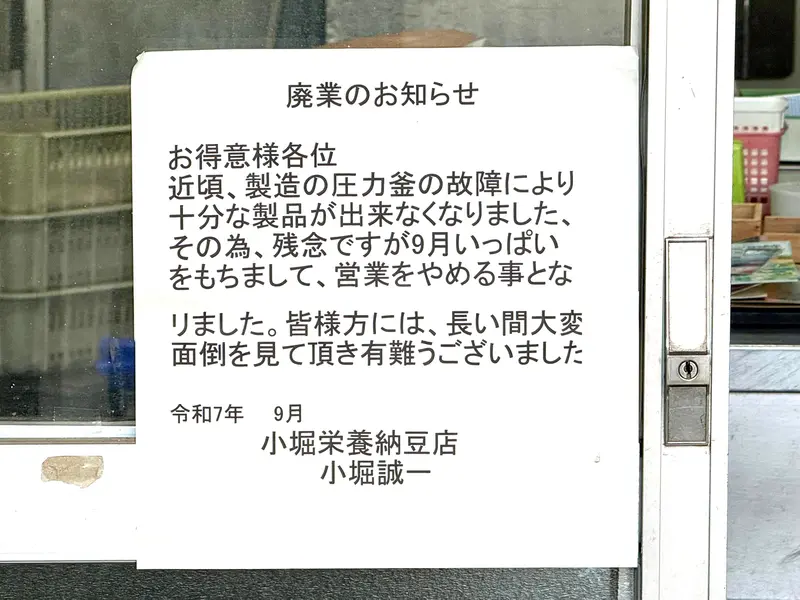 廃業のお知らせ
お得意様各位
近頃、製造の圧力釜の故障により
十分な製品が出来なくなりました、
その為、残念ですが9月いっぱい
をもちまして、営業をやめる事とな
りました。皆様方には、長い間大変
面倒を見て頂き有難うございました
令和7年 9月
小堀栄養納豆店
小堀誠一